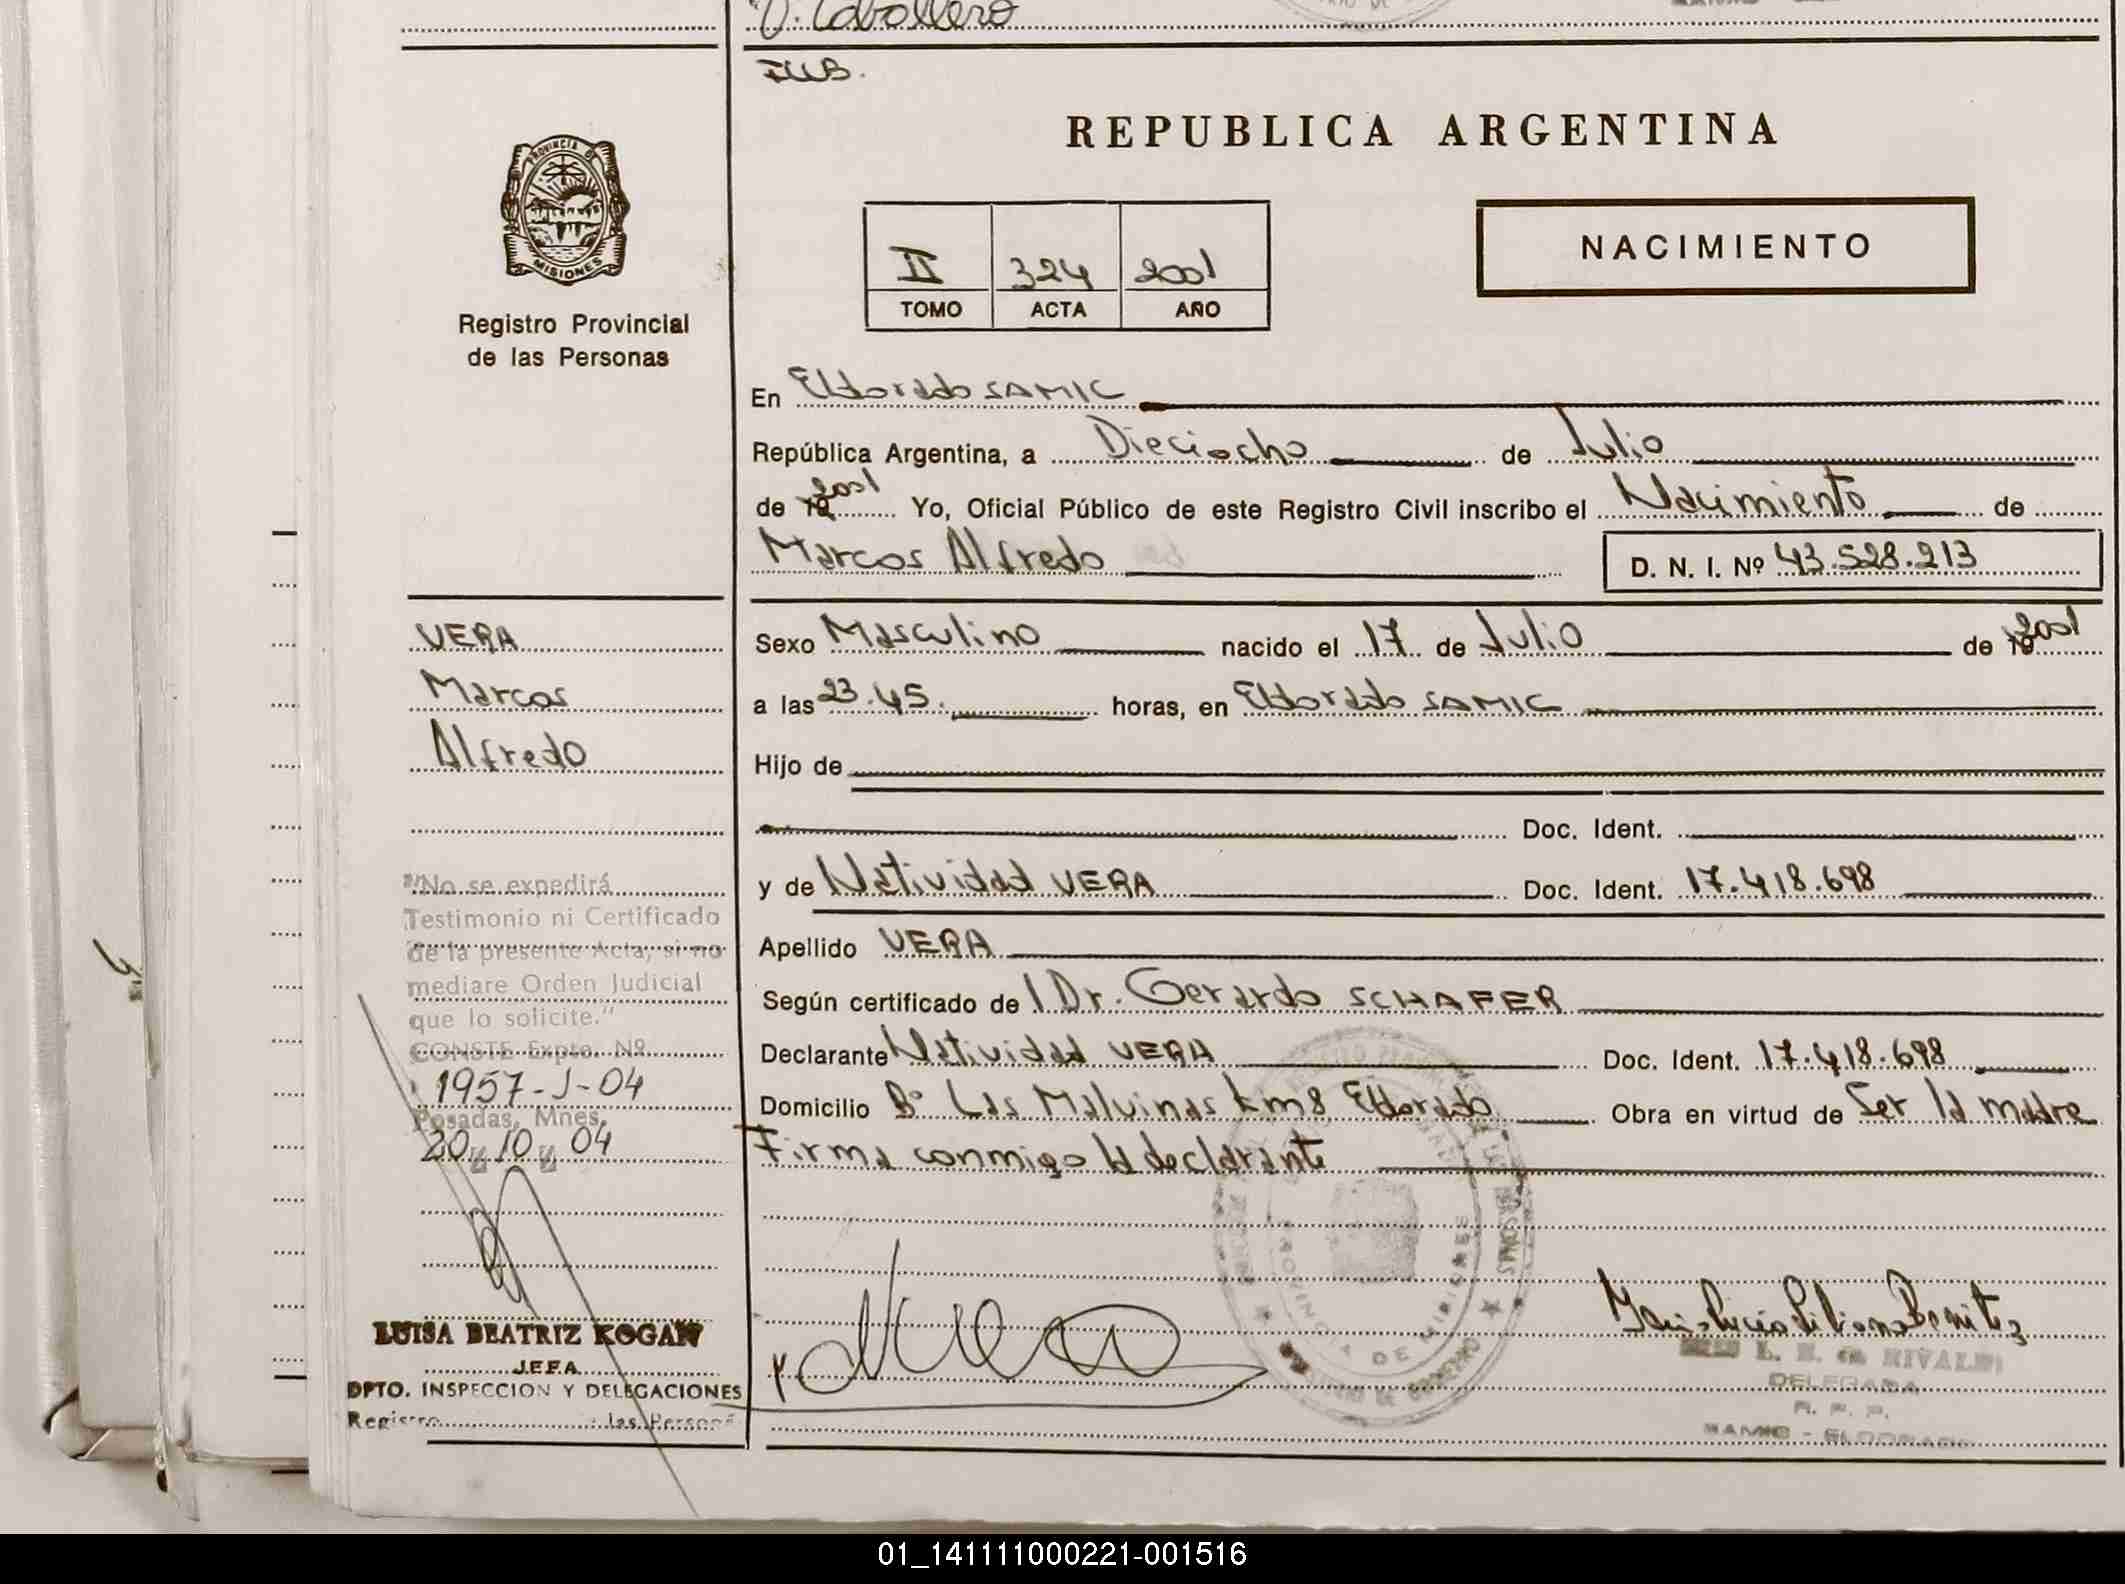 D. Caballero
REPUBLICA ARGENTINA
PROVINCIA DE
MISIONES
Registro Provincial
de las Personas
II 324 2001
TOMO ACTA AÑO
NACIMIENTO
En Eldorado SAMIC
República Argentina, a Dieciocho de Julio
de 19 2001 Yo, Oficial Público de este Registro Civil inscribo el Nacimiento de
Marcos Alfredo D. N. I. Nº 43.528.213
VERA
Marcos
Alfredo
Sexo Masculino nacido el 17 de Julio de 19 2001
a las 23.45. horas, en Eldorado SAMIC
Hijo de
Doc. Ident.
y de Natividad VERA Doc. Ident. 17.418.698
Apellido VERA
Según certificado de l Dr. Gerardo SCHAFER
Declarante Natividad VERA Doc. Ident. 17.418.698
Domicilio Bº Las Malvinas km8 Eldorado Obra en virtud de Ser la madre
Firma conmigo la declarante
"No se expedirá
Testimonio ni Certificado
de la presente Acta, si no
mediare Orden Judicial
que lo solicite."
CONSTE Expte. Nº
1957-J-04
Posadas, Mnes.
20 10 04
LUISA BEATRIZ KOGAN
JEFA
DPTO. INSPECCION Y DELEGACIONES
Registro las Person
PROVINCIA DE MISIONES
DELEGADA
R. P. P.
SAMIC - ELDORADO
01_141111000221-001516